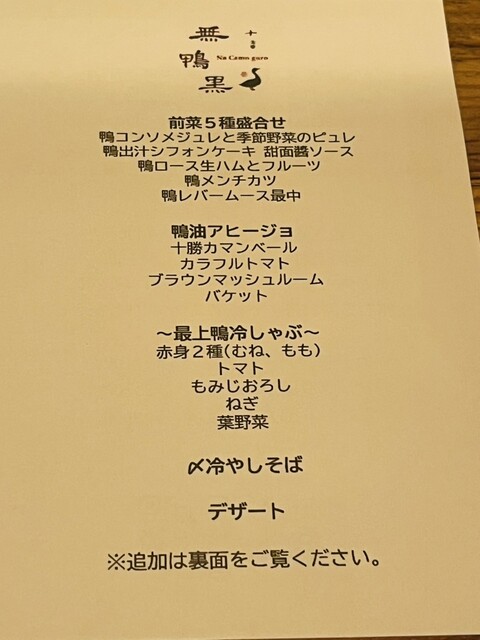 無
鴨
黒
十
Na Camo guro
前菜５種盛合せ
鴨コンソメジュレと季節野菜のピュレ
鴨出汁シフォンケーキ 甜面醤ソース
鴨ロース生ハムとフルーツ
鴨メンチカツ
鴨レバームース最中
鴨油アヒージョ
十勝カマンベール
カラフルトマト
ブラウンマッシュルーム
バケット
～最上鴨冷しゃぶ～
赤身２種(むね、もも)
トマト
もみじおろし
ねぎ
葉野菜
〆冷やしそば
デザート
※追加は裏面をご覧ください。